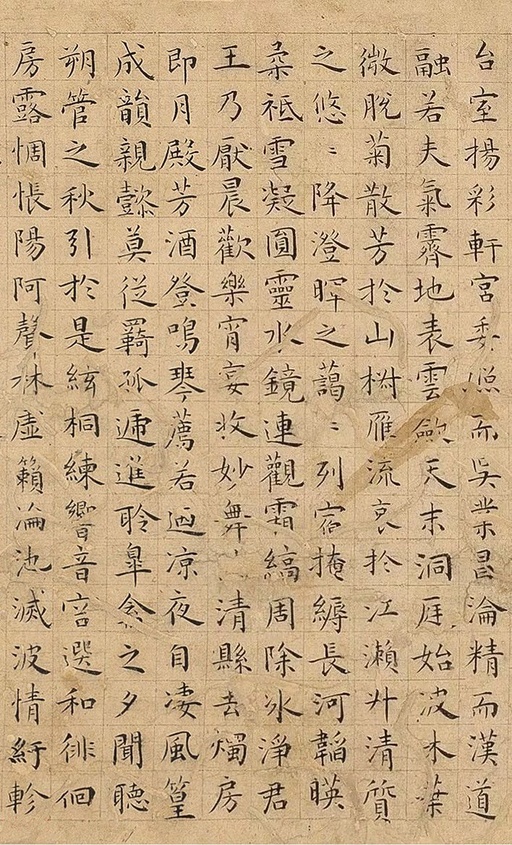 台室揚彩軒宮委照而吳業昌淪精而漢道
融若夫氣霽地表雲斂天末洞庭始波木葉
微脫菊散芳於山椒雁流哀於江瀨升清質
之悠〻降澄暉之藹〻列宿掩縟長河韜暎
柔祇雪凝圓靈水鏡連觀霜縞周除冰淨君
王乃厭晨歡樂宵宴收妙舞清縣去燭房
即月殿芳酒登鳴琴薦若迺凉夜自凄風篁
成韻親懿莫從羇孤遞進聆皐禽之夕聞聽
朔管之秋引於是絃桐練響音容選和徘徊
房露惆悵陽阿聲林虛籟淪池滅波情紆軫